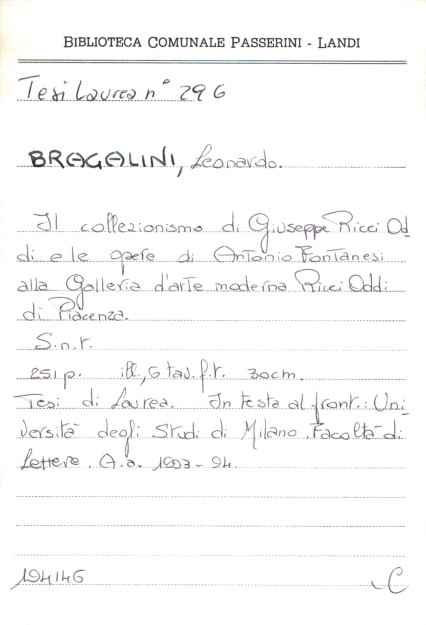 BIBLIOTECA COMUNALE PASSERINI - LANDI
Tesi Laurea n° 296
BRAGALINI, Leonardo.
Il collezionismo di Giuseppe Ricci Od
di e le opere di Antonio Fontanesi
alla Galleria d'arte moderna Ricci Oddi
di Piacenza.
S.n.t.
251 p. ill., 6 tav. f.t. 30cm.
Tesi di Laurea. In testa al front.: Uni-
versità degli Studi di Milano. Facoltà di
Lettere. A.a. 1993-94.
194146
C